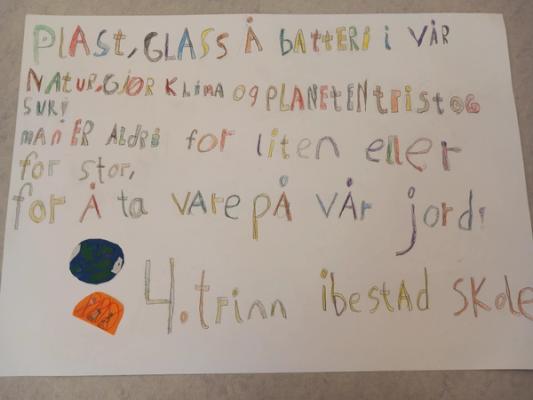 PLAST, GLASS Å BATTERI i VÅR
NATUR, GJØR KLIMA Og PLANETEN tRist OG
SUR!
man ER Aldri for liten eller
for stor,
for Å ta vare på vår jord!
4. trinn ibestad Skole